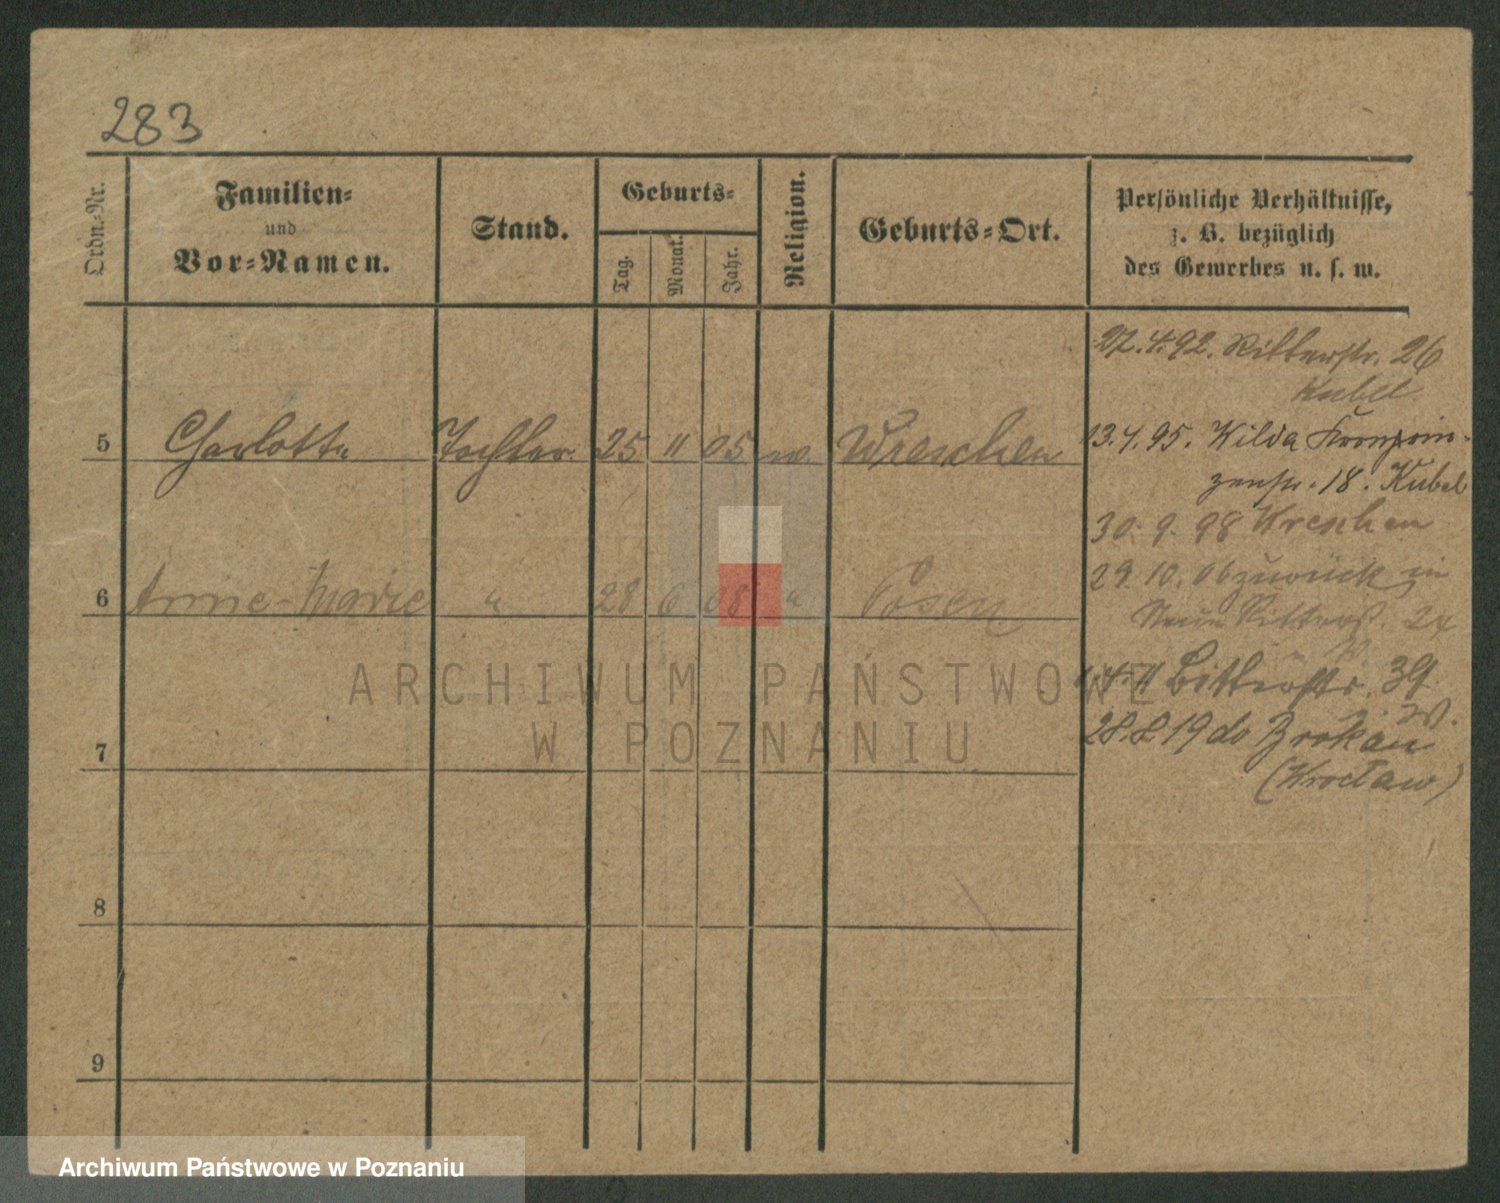 283
Ordn.-Nr.
Familien-
und
Vor-Namen.
Stand.
Geburts-
Tag.
Monat.
Jahr.
Religion.
Geburts-Ort.
Persönliche Verhältnisse,
z. B. bezüglich
des Gewerbes u. s. w.
27.4.92. Ritterstr. 26
Kubel
5 Charlotte Tochter 25 11 05 Wreschen
13.4.95. Wilda Kronprin-
zenstr. 18. Kubel
30. 9. 98 Wreschen
29. 10. 06 zurück in
6 Anne-Marie " 28 6 08 " Posen
Ritterstr. 24
4. 11 Ritterstr. 39
28.8 19 do
(Wrocław)
7
8
9
ARCHIWUM PAŃSTWOWE
W POZNANIU
Archiwum Państwowe w Poznaniu